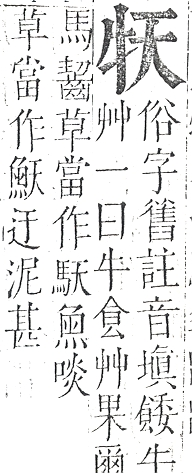 俗字舊註音塡餧牛
艸一曰牛食艸果爾
馬齧草當作魚啖
草當作迂泥甚